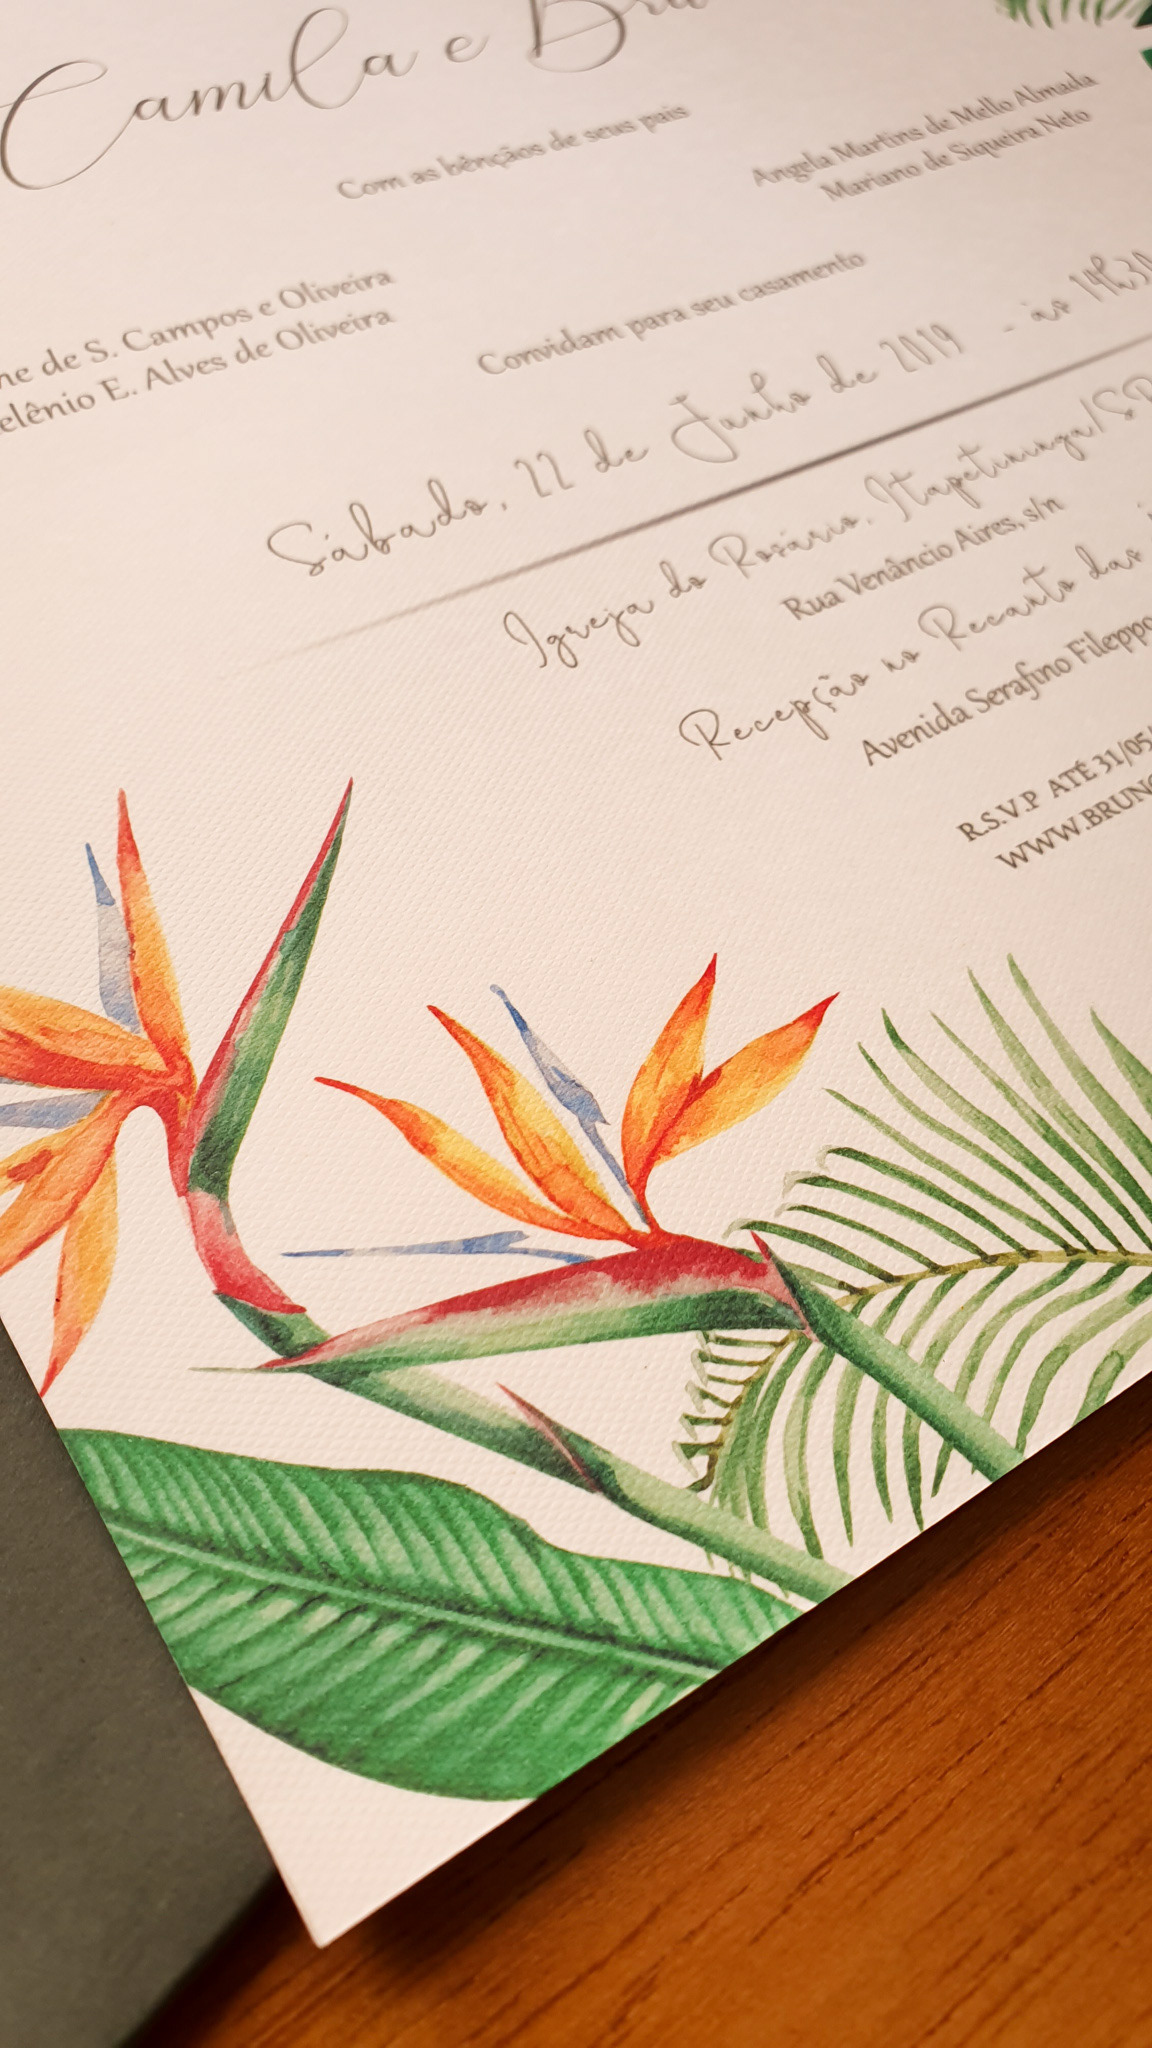 Camila e Bru
Com as bênçãos de seus pais
Angela Martins de Mello Almada
Mariano de Siqueira Neto
ne de S. Campos e Oliveira
elênio E. Alves de Oliveira
Convidam para seu casamento
Sábado, 22 de Junho de 2019 - às 14h30
Igreja do Rosário, Itapetininga/SP
Rua Venâncio Aires, s/n
Recepção no Recanto das
Avenida Serafino Fileppo
R.S.V.P ATÉ 31/05/
WWW.BRUNO